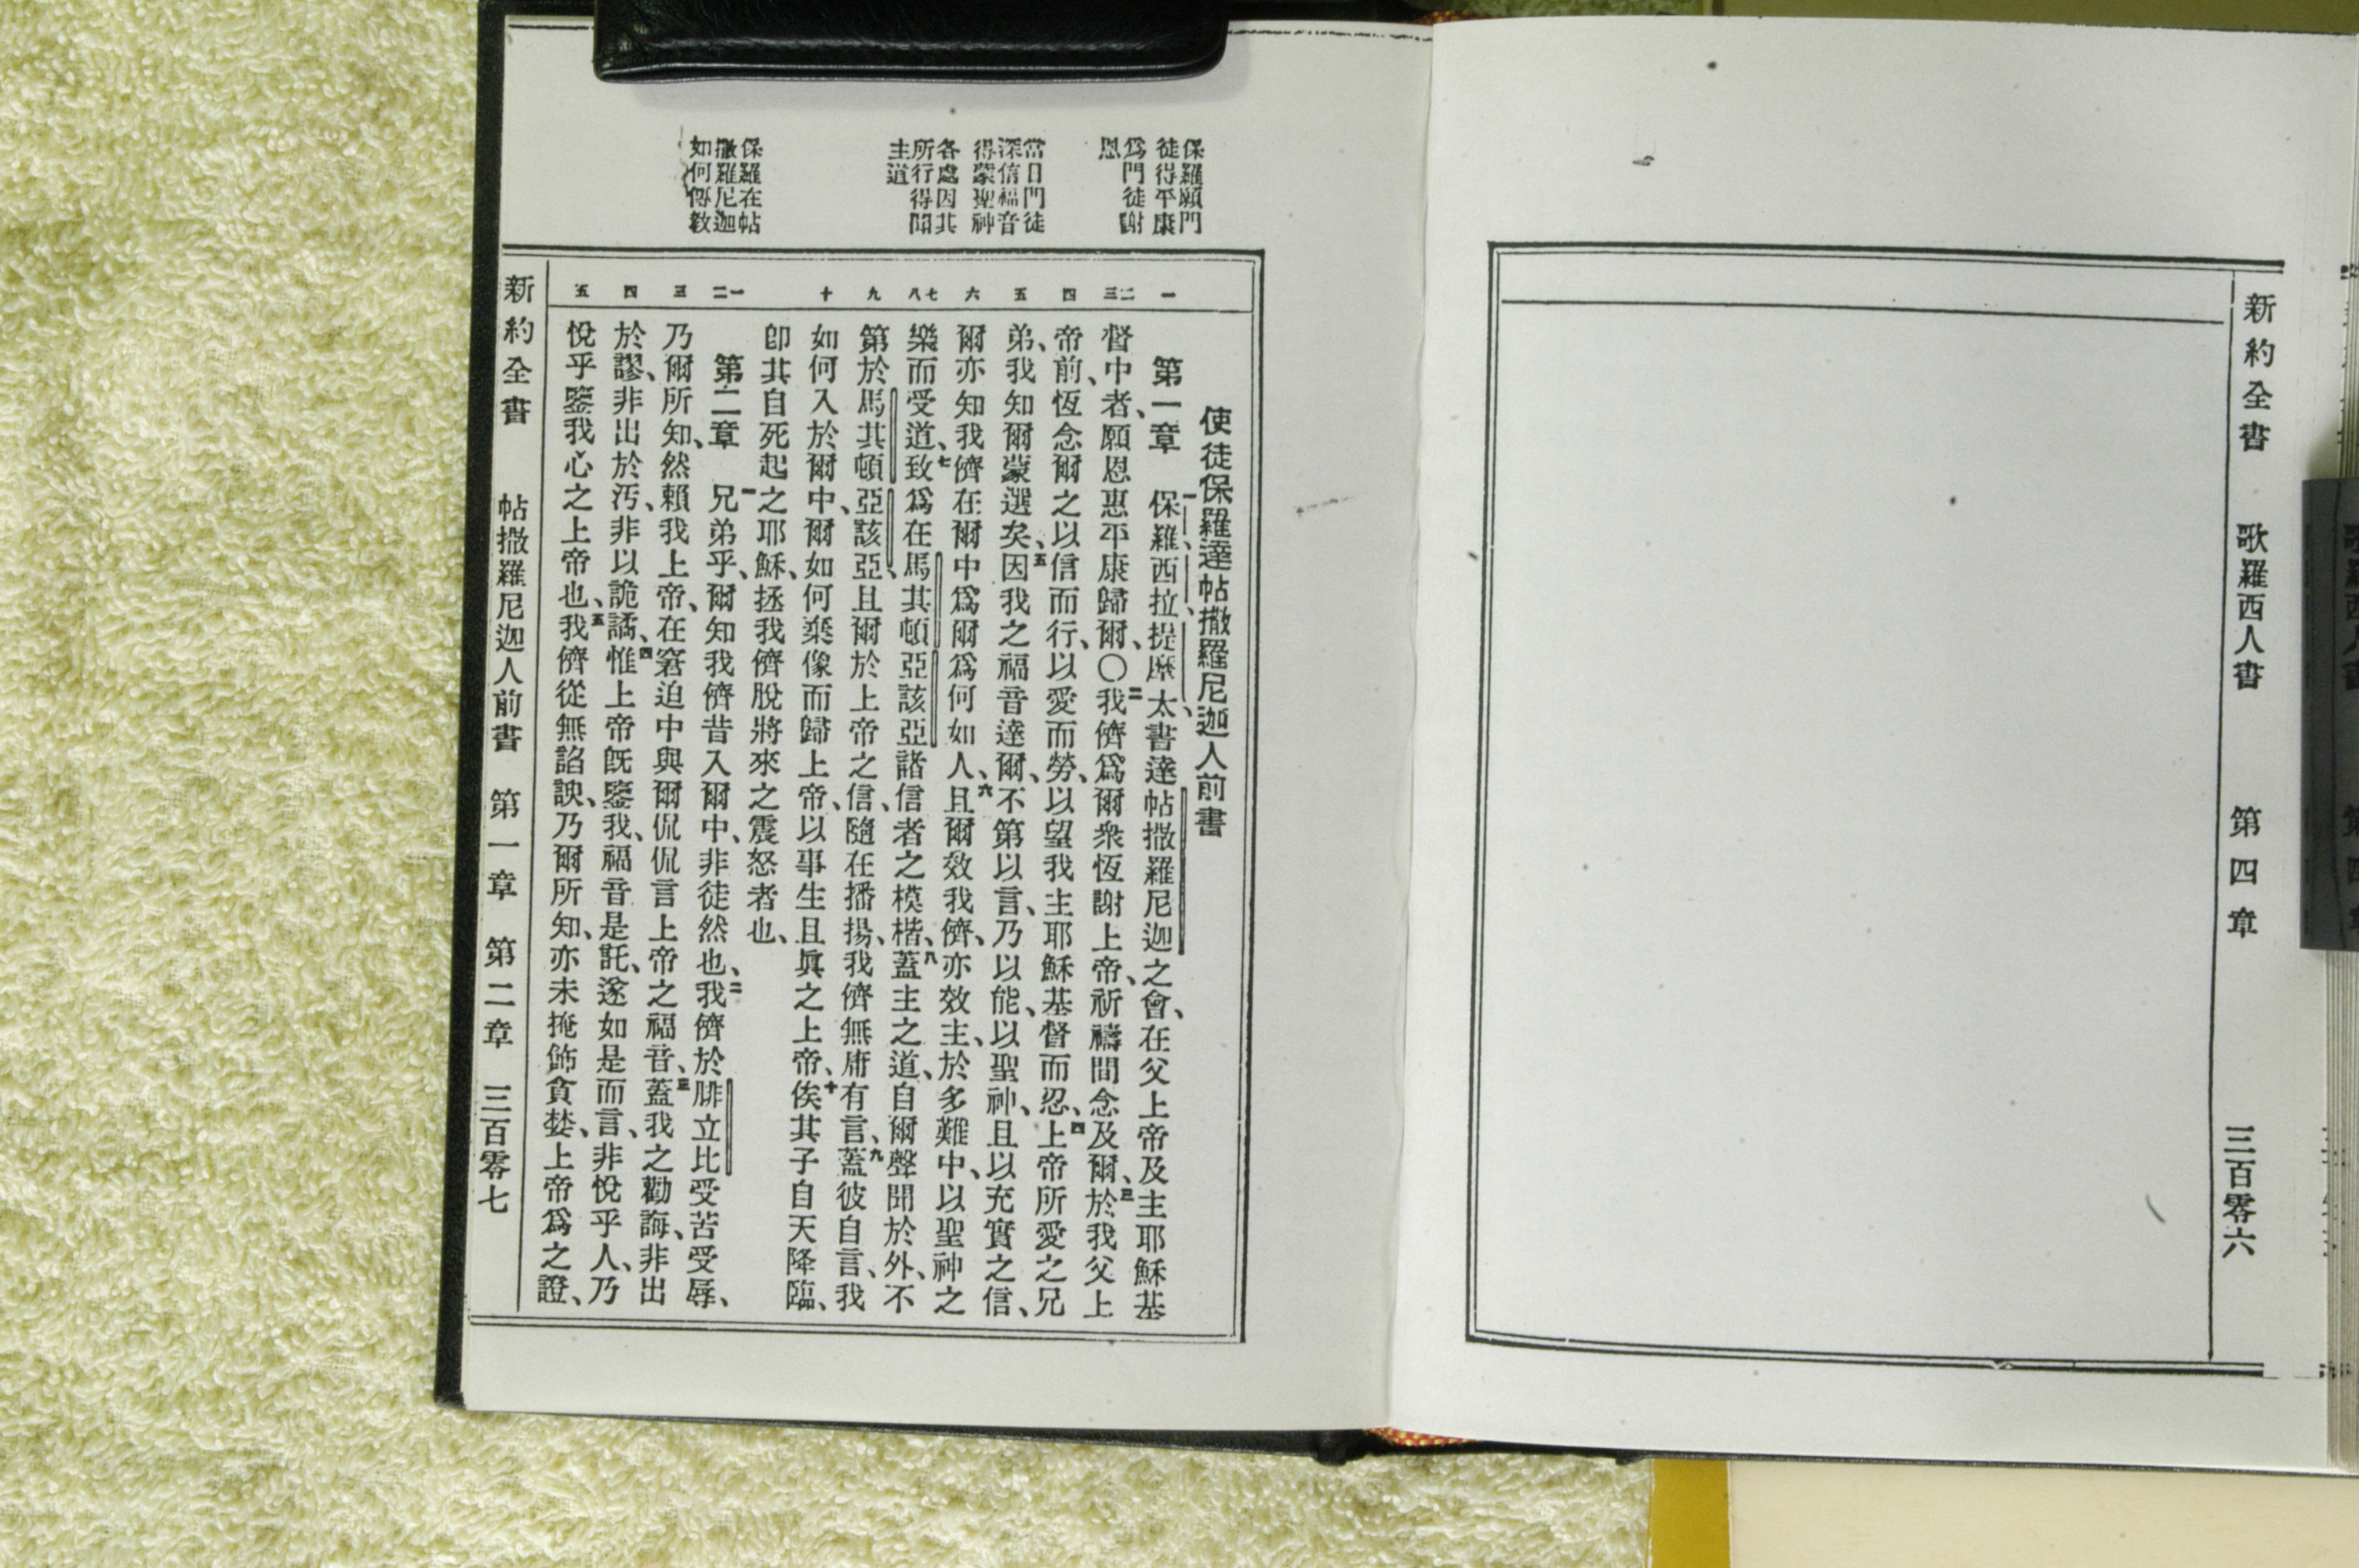 新約全書 歌羅西人書 第四章 三百零六
保羅願門
徒得平康
爲門徒謝
恩
當日門徒
深信福音
得蒙聖神
各處因其
所行得聞
主道
保羅在帖
撒羅尼迦
如何傳敎
一 二三 四 五 六 七八 九 十 一二 三 四 五
使徒保羅達帖撒羅尼迦人前書
第一章 一保羅、西拉、提摩太、書達帖撒羅尼迦之會、在父上帝及主耶穌基
督中者、願恩惠平康歸爾、〇二我儕爲爾衆恆謝上帝、祈禱間念及爾、三於我父上
帝前、恆念爾之以信而行、以愛而勞、以望我主耶穌基督而忍、四上帝所愛之兄
弟、我知爾蒙選矣、五因我之福音達爾、不第以言、乃以能、以聖神、且以充實之信、
爾亦知我儕在爾中爲爾爲何如人、六且爾效我儕、亦效主、於多難中、以聖神之
樂而受道、七致爲在馬其頓亞該亞諸信者之模楷、八蓋主之道、自爾聲聞於外、不
第於馬其頓、亞該亞、且爾於上帝之信、隨在播揚、我儕無庸有言、九蓋彼自言、我
如何入於爾中、爾如何棄像而歸上帝、以事生且眞之上帝、十俟其子自天降臨、
卽其自死起之耶穌、拯我儕脫將來之震怒者也、
第二章 一兄弟乎、爾知我儕昔入爾中、非徒然也、二我儕於腓立比受苦受辱、
乃爾所知、然賴我上帝、在窘迫中與爾侃侃言上帝之福音、三蓋我之勸誨、非出
於謬、非出於汚、非以詭譎、四惟上帝旣鑒我、福音是託、遂如是而言、非悅乎人、乃
悅乎鑒我心之上帝也、五我儕從無諂諛、乃爾所知、亦未掩飾貪婪、上帝爲之證、
新約全書 帖撒羅尼迦人前書 第一章 第二章 三百零七